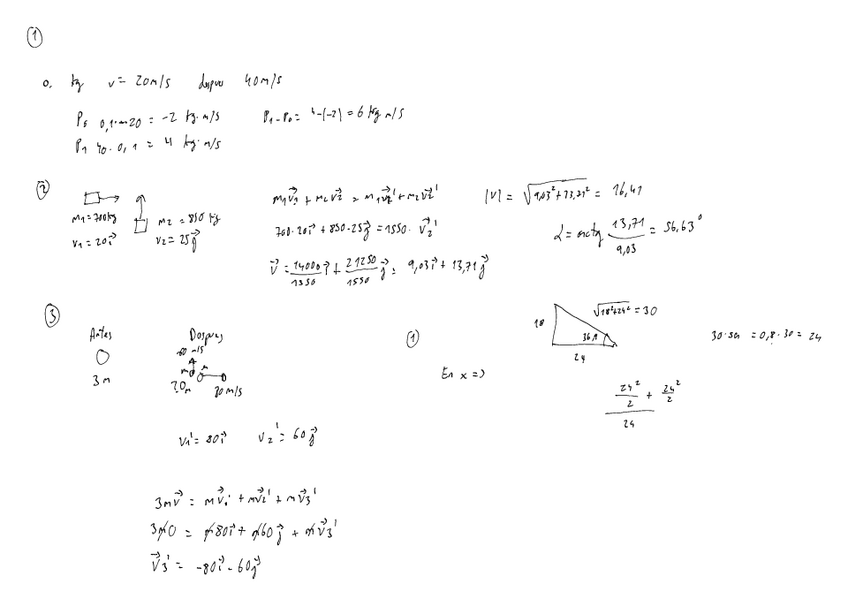 ①
0. kg v = 20m/s despues 40m/s
P₀ 0,1·-20 = -2 kg·m/s P₁-P₀ = 4-(-2) = 6 kg m/s
P₁ 40·0,1 = 4 kg·m/s
②
m₁=700kg
v₁=20i⃗
m₂=850 kg
v₂=25j⃗
m₁v⃗₁ + m₂v⃗₂ = m₁v⃗₂' + m₂v⃗₂'
700·20i⃗ + 850·25j⃗ = 1550· v⃗₂'
v⃗ = 14000/1550 i⃗ + 21250/1550 j⃗ = 9,03i⃗ + 13,71j⃗
|v| = √(9,03² + 13,71²) = 16,41
α = arctg 13,71/9,03 = 56,63°
③
Antes
3m
Despues
60 m/s
m
m
80m/s
v₁' = 80i⃗ v₂' = 60j⃗
3mv⃗ = mv⃗₁' + mv⃗₂' + mv⃗₃'
3m0 = m80i⃗ + m60j⃗ + mv⃗₃'
v⃗₃' = -80i⃗ - 60j⃗
①
18
√(18²+24²) = 30
24
30·sen = 0,8·30 = 24
En x =>
24²/2 + 24²/2
24